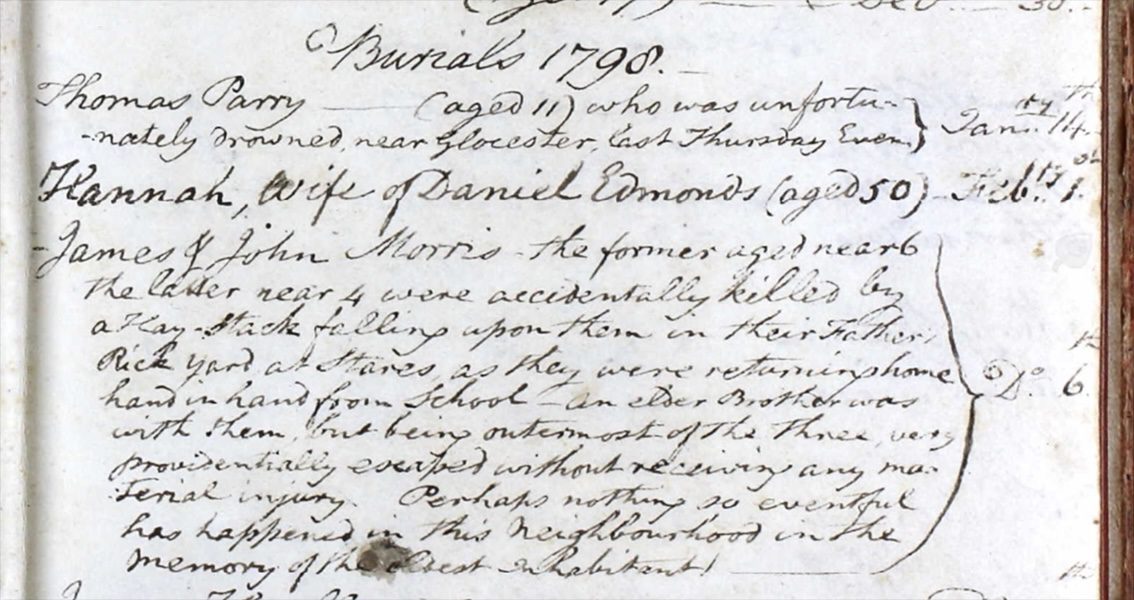 Burials 1798.
Thomas Parry —— (aged 11) who was unfortu- } Janry. 14th.
-nately drowned, near Glocester, last Thursday Even. }
Hannah, Wife of Daniel Edmonds (aged 50) - Febry. 1.
- James & John Morris - the former aged near 6
the latter near 4 were accidentally killed by
a Hay-Stack falling upon them in their Father's
Rick Yard at Stares, as they were returning home } Do. 6th.
hand in hand from School - an elder Brother was
with them, but being outermost of the three, very
providentially escaped without receiving any ma-
terial injury. Perhaps nothing so eventful
has happened in this Neighbourhood in the
memory of the oldest Inhabitant! ——